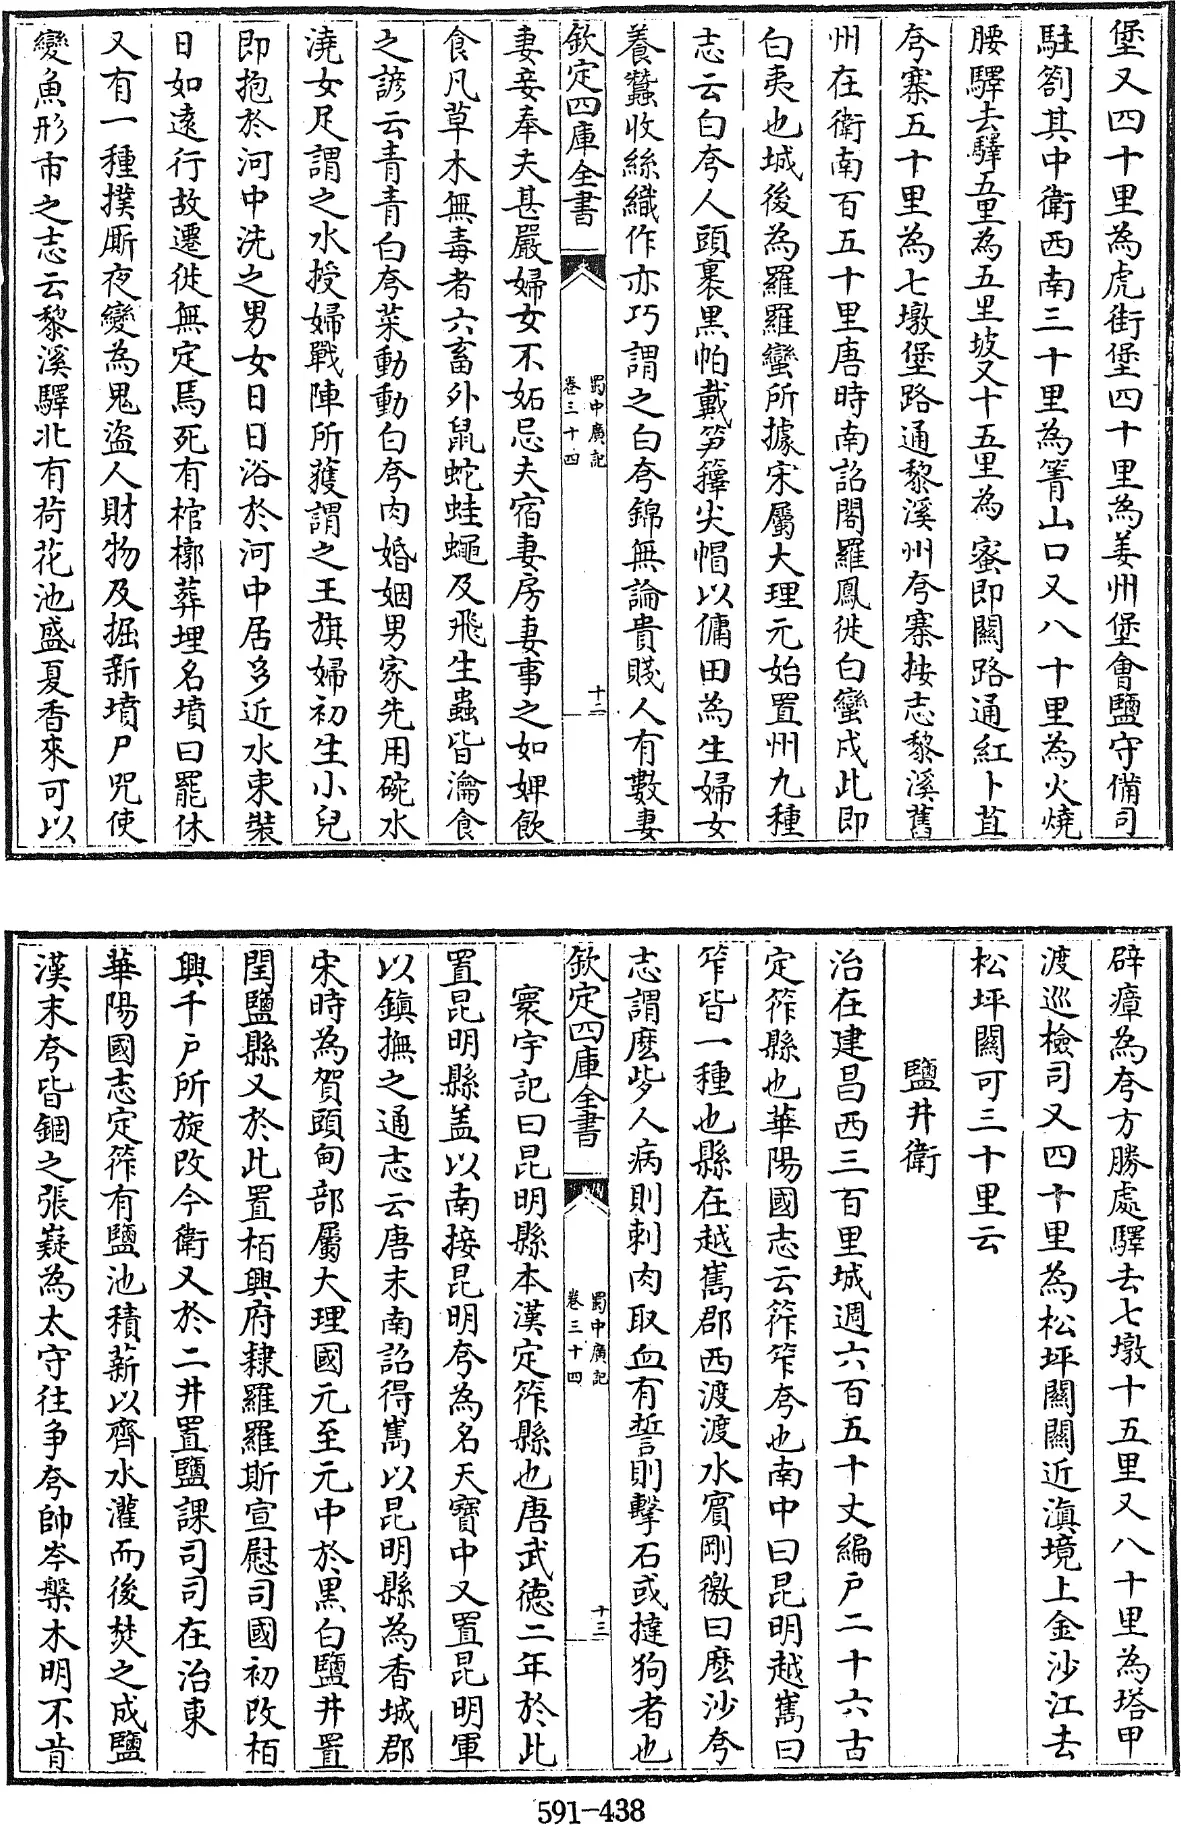 堡又四十里為虎街堡四十里為姜州堡會鹽守備司
駐劄其中衛西南三十里為箐山口又八十里為火燒
腰驛去驛五里為五里坡又十五里為蜜即關路通紅卜苴
夸寨五十里為七墩堡路通黎溪州夸寨按志黎溪舊
州在衛南百五十里唐時南詔閣羅鳳徙白蠻戍此即
白夷也城後為羅羅蠻所據宋屬大理元始置州九種
志云白夸人頭裹黑帕戴笋籜尖帽以傭田為生婦女
養蠶收絲織作亦巧謂之白夸錦無論貴賤人有數妻
欽定四庫全書
蜀中廣記
卷三十四
十二
妻妾奉夫甚嚴婦女不妬忌夫宿妻房妻事之如婢飲
食凡草木無毒者六畜外鼠蛇蛙蠅及飛生蟲皆瀹食
之諺云青青白夸菜動動白夸肉婚姻男家先用碗水
澆女足謂之水授婦戰陣所獲謂之王旗婦初生小兒
即抱於河中洗之男女日日浴於河中居多近水束裝
日如遠行故遷徙無定焉死有棺槨葬埋名墳曰罷休
又有一種撲厮夜變為鬼盜人財物及掘新墳尸咒使
變魚形市之志云黎溪驛北有荷花池盛夏香來可以
辟瘴為夸方勝處驛去七墩十五里又八十里為塔甲
渡巡檢司又四十里為松坪關關近滇境上金沙江去
松坪關可三十里云
鹽井衛
治在建昌西三百里城週六百五十丈編戶二十六古
定筰縣也華陽國志云筰笮夸也南中曰昆明越嶲曰
笮皆一種也縣在越嶲郡西渡渡水賓剛徼曰麽沙夸
志謂麽些人病則刺肉取血有誓則擊石或撻狗者也
欽定四庫全書
蜀中廣記
卷三十四
十三
寰宇記曰昆明縣本漢定筰縣也唐武德二年於此
置昆明縣盖以南接昆明夸為名天寶中又置昆明軍
以鎮撫之通志云唐末南詔得嶲以昆明縣為香城郡
宋時為賀頭甸部屬大理國元至元中於黑白鹽井置
閏鹽縣又於此置栢興府隸羅羅斯宣慰司國初改栢
興千戶所旋改今衛又於二井置鹽課司司在治東
華陽國志定筰有鹽池積薪以齊水灌而後焚之成鹽
漢末夸皆錮之張嶷為太守往争夸帥岑槃木明不肯
591-438